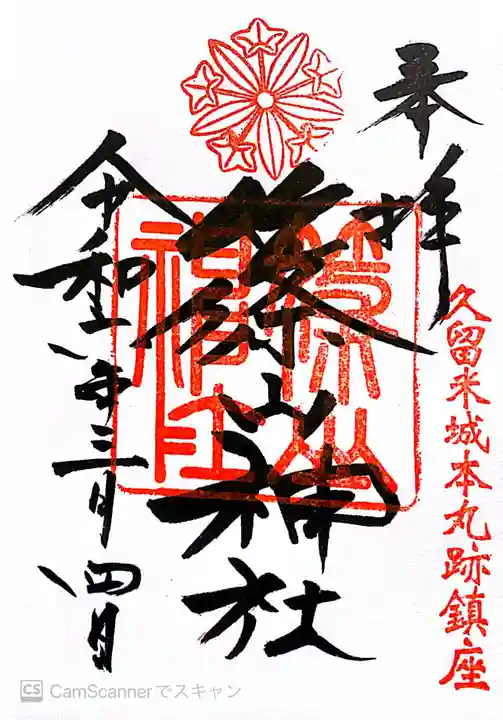 奉拝
久留米城本丸跡鎮座
篠山神社
篠山神社
令和六年三月四日
CS CamScannerでスキャン